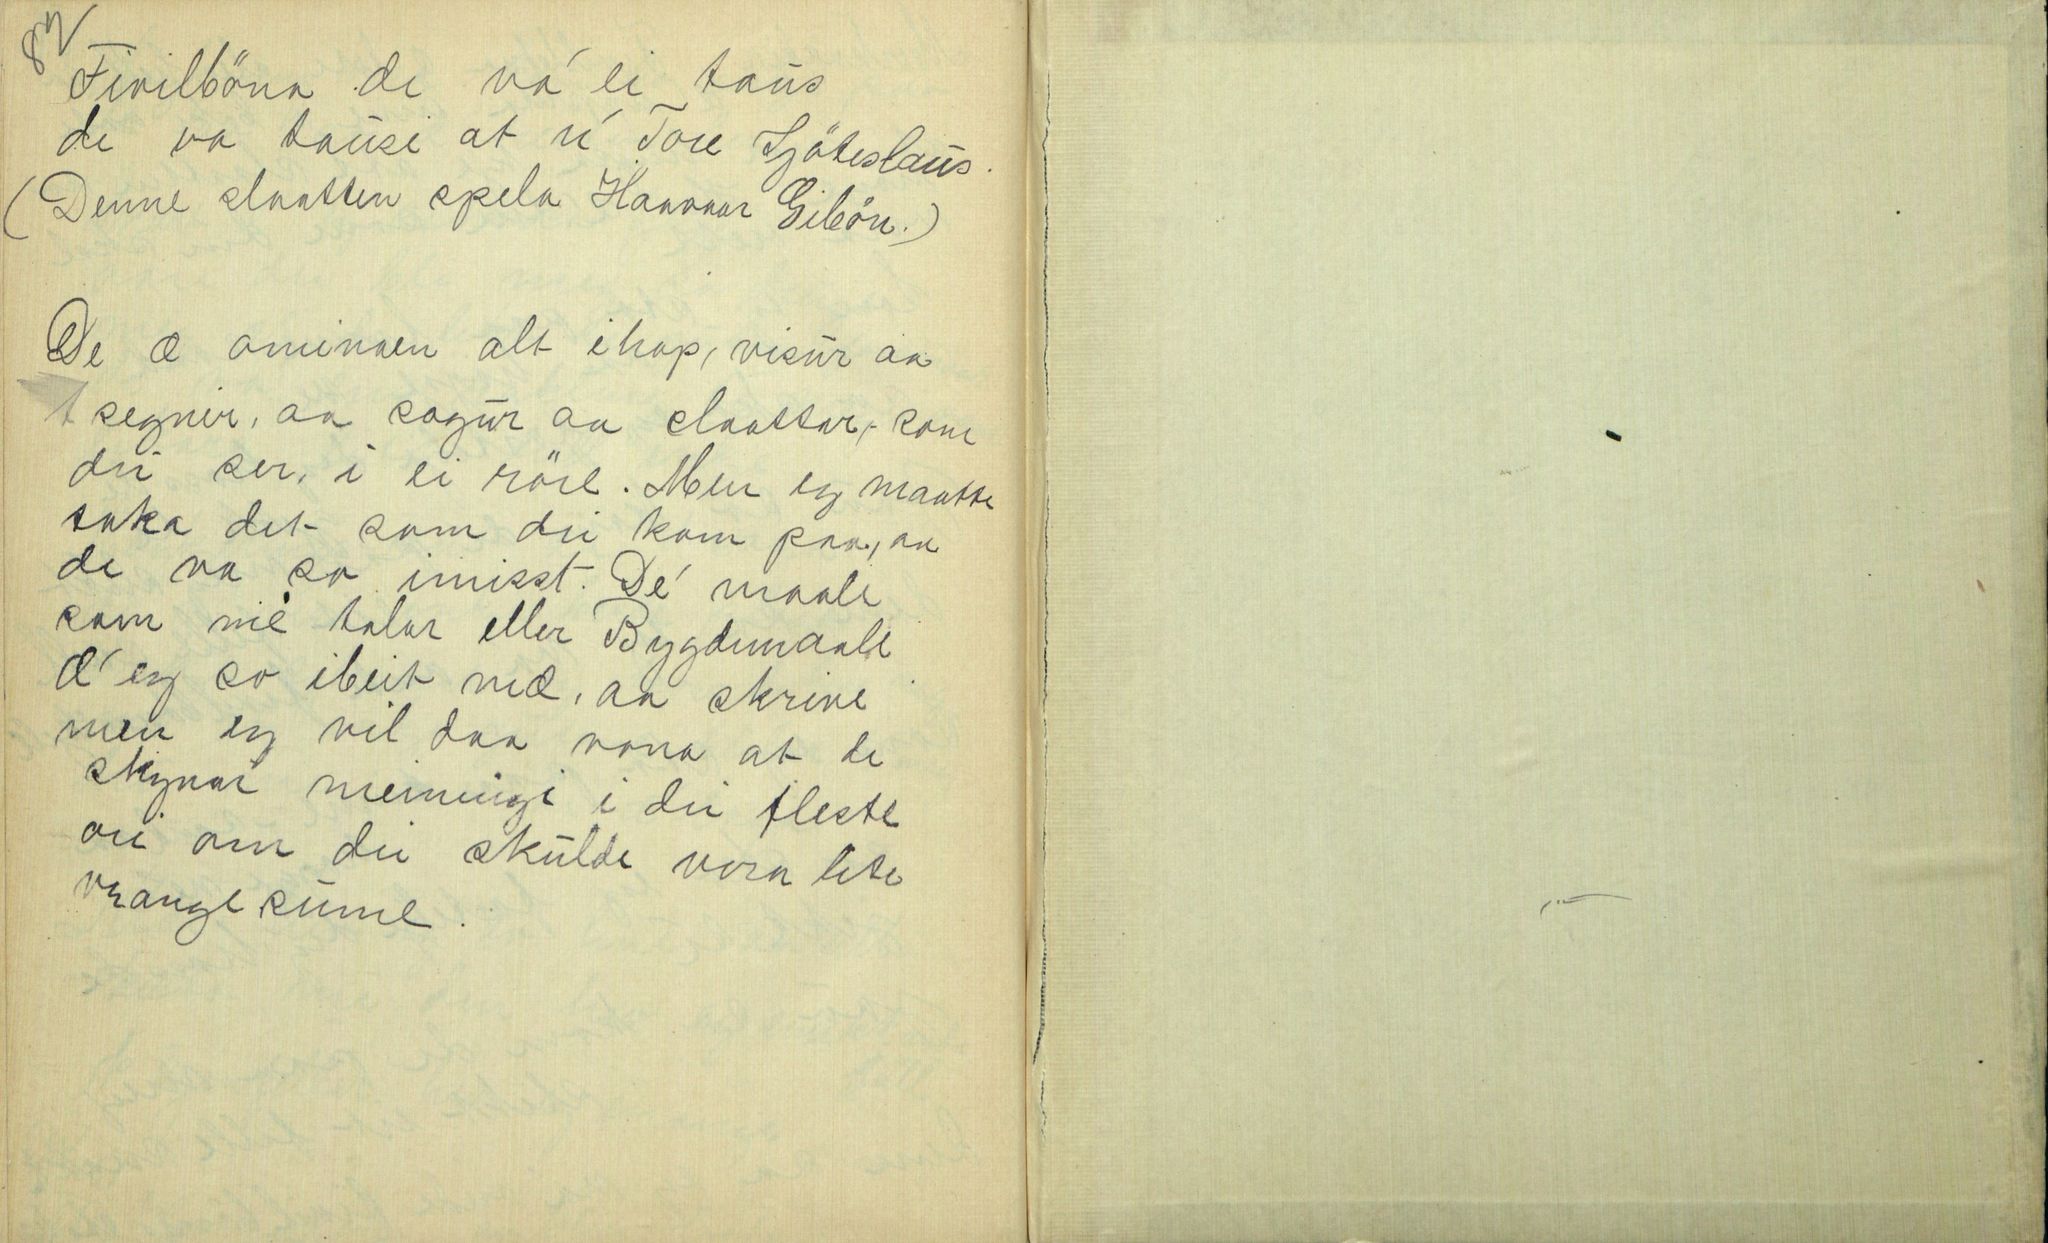 82
Fivilböna de va' ei taus
de va tausi at n' Tore Tjöteslaus.
(Denne slaatten spela Haavar Giböen.)
De æ ominaen alt ihop, visur aa
segner, aa sogur aa slaattar, som
dei ser, i ei röre. Men eg maatte
taka det som dei kom paa, aa
de va so imisst. De' maale
som me talar eller Bygdemaale
æ' eg so ibeit mæ, aa skrive
men eg vil daa vona at de
skynar meiningi i dei fleste
ori om dei skulde vera lite
vrange sume.